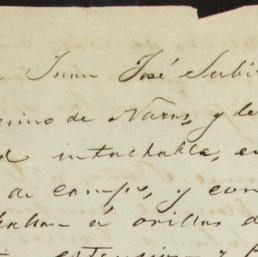 Juan José Subi
ino de Narros, y le
intachable, en
de campo, y con
ban á orillas d
estensivo y